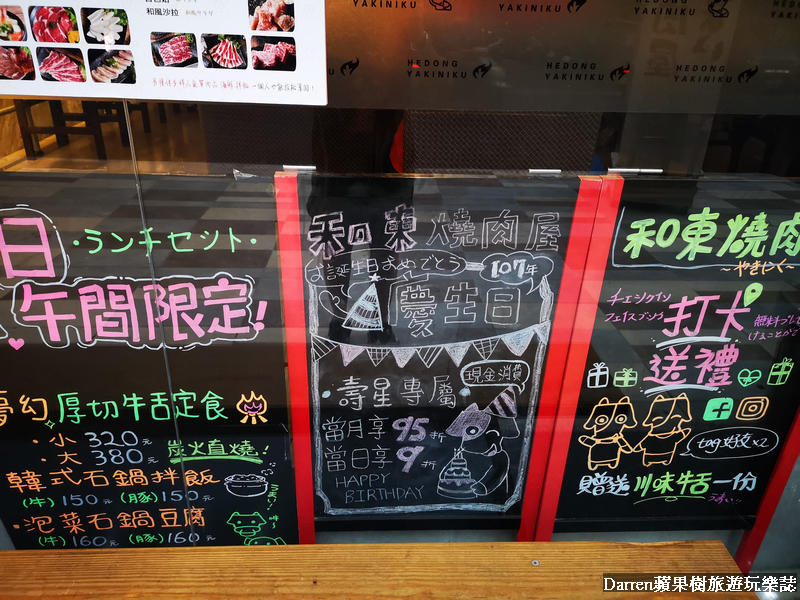 和風沙拉
一個人也能放鬆享用!
HEDONG
YAKINIKU
HEDONG
YAKINIKU
HEDONG
YAKINIKU
HEDONG
YAKINIKU
日
・ランチセット・
午間限定!
夢幻厚切牛舌定食
・小 320元
・大 380元
炭火直燒!
韓式石鍋拌飯
(牛) 150元 (豚) 150元
・泡菜石鍋豆腐
(牛) 160元 (豚) 160元
和東燒肉屋
お誕生日おめでとう
107年
慶生日
・壽星專屬・
現金消費
當月享95折
當日享9折
HAPPY
BIRTHDAY
和東燒肉
～やきにく～
チェックイン
フェイスブック
打卡
送禮
tag好友x2
贈送川味牛舌一份
Darren蘋果樹旅遊玩樂誌